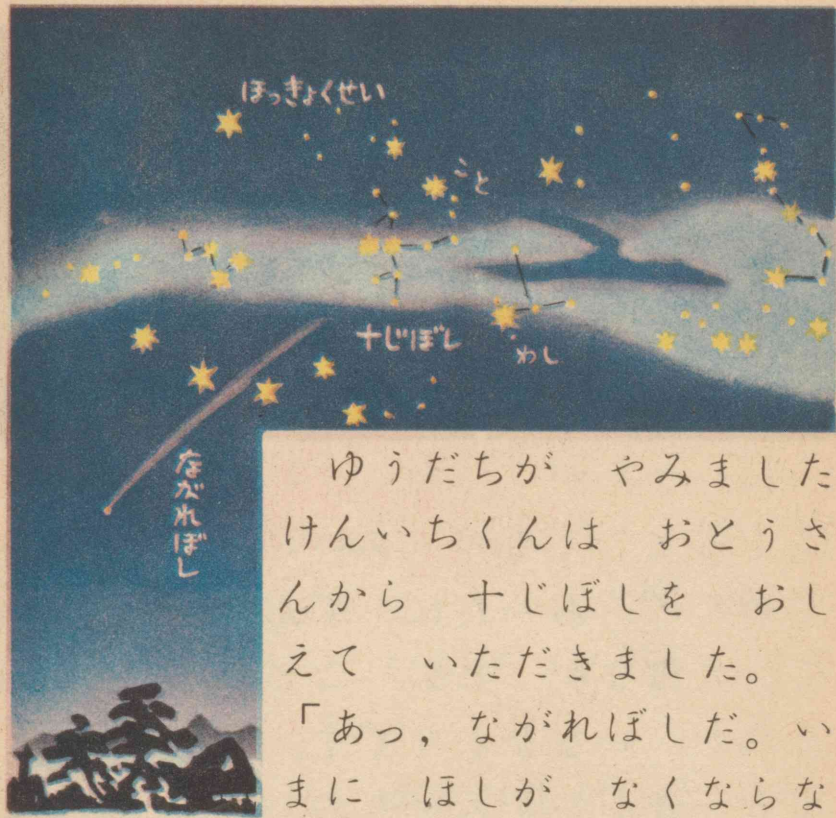 ほっきょくせい
こと
十じぼし
わし
ながれぼし
ゆうだちが　やみました
けんいちくんは　おとうさ
んから　十じぼしを　おし
えて　いただきました。
「あっ，ながれぼしだ。い
まに　ほしが　なくならな